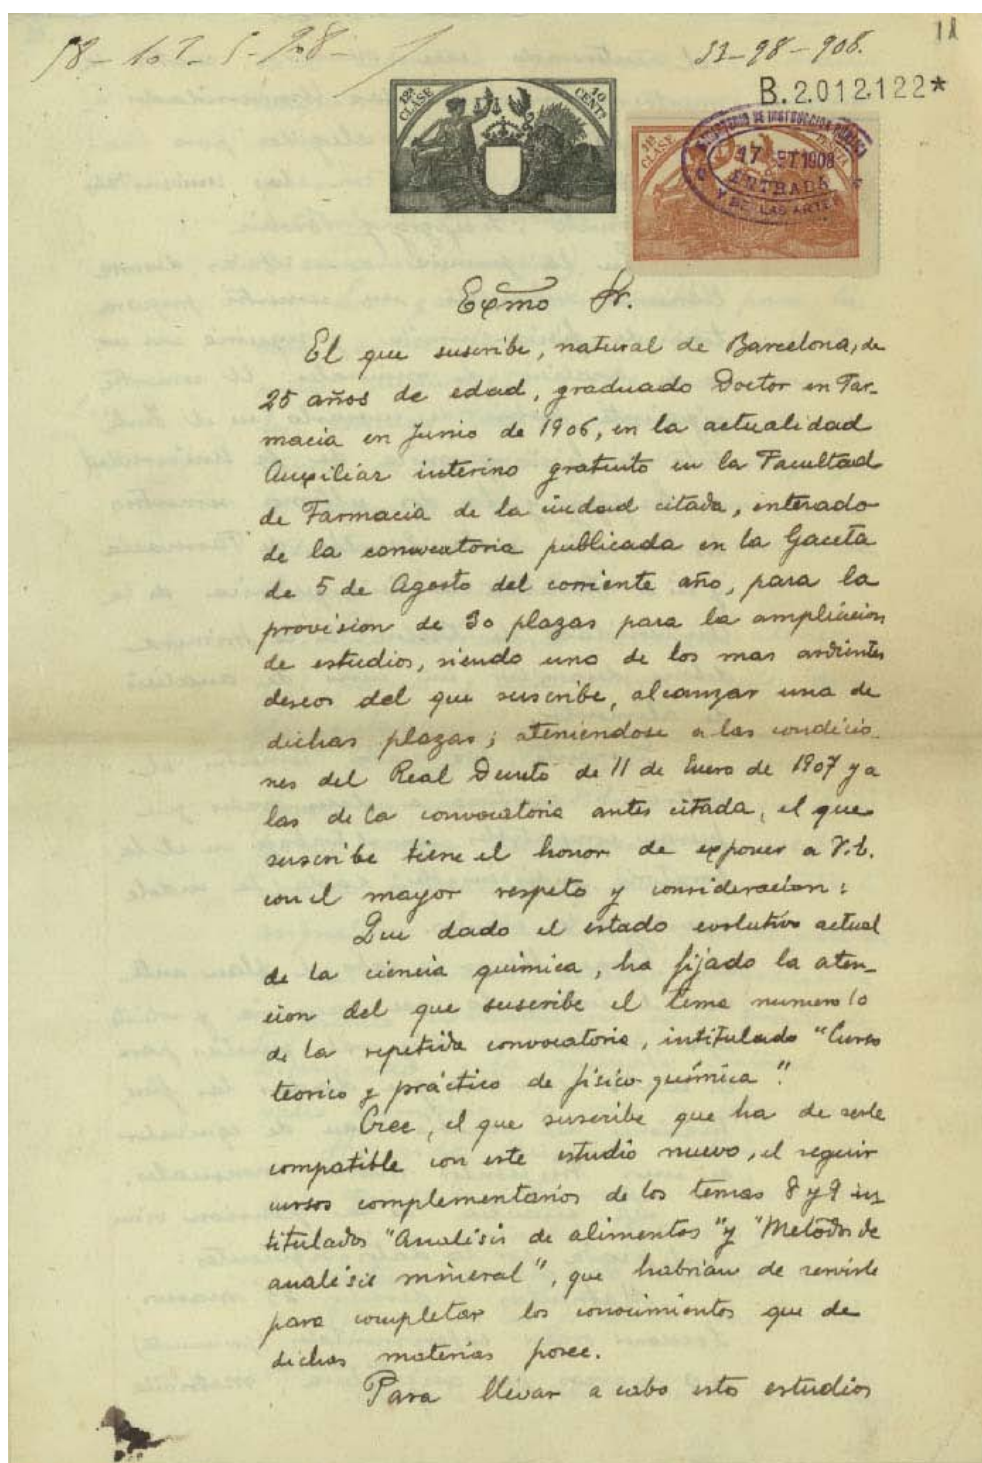 18
58-107-5-908-
51-98-908.
B.2.012.122*
12ª CLASE 10 CENTS
11ª CLASE PESETA
MINISTERIO DE INSTRUCCION PUBLICA
17 SET 1908
ENTRADA
Y DE LAS ARTES
Exmo Sr.
El que suscribe, natural de Barcelona, de
25 años de edad, graduado Doctor en Far-
macia en Junio de 1906, en la actualidad
Auxiliar interino gratuito en la Facultad
de Farmacia de la ciudad citada, enterado
de la convocatoria publicada en la Gaceta
de 5 de Agosto del corriente año, para la
provision de 30 plazas para la ampliacion
de estudios, siendo uno de los mas ardientes
deseos del que suscribe, alcanzar una de
dichas plazas; ateniéndose a las condicio-
nes del Real Decreto de 11 de Enero de 1907 y a
las de la convocatoria antes citada, el que
suscribe tiene el honor de exponer a V.E.
con el mayor respeto y consideracion:
Que dado el estado evolutivo actual
de la ciencia química, ha fijado la aten-
cion del que suscribe el tema numero 10
de la repetida convocatoria, intitulado "Curso
teorico y práctico de fisico-química".
Cree, el que suscribe que ha de serle
compatible con este estudio nuevo, el seguir
cursos complementarios de los temas 8 y 9 in-
titulados "Analisis de alimentos" y "Metodos de
analisis mineral", que habrian de servirle
para completar los conocimientos que de
dichas materias posee.
Para llevar a cabo estos estudios